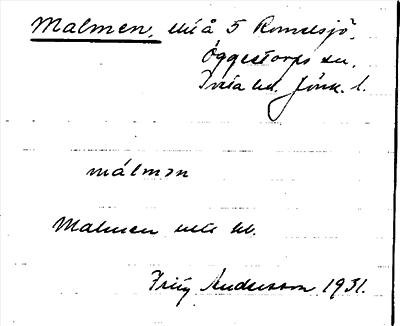 Malmen, till å 5 Romelsjö,
Öggestorps sn,
Tveta hd. Jönk. l.
målmən
Malmen
Fritz Andersson 1931.